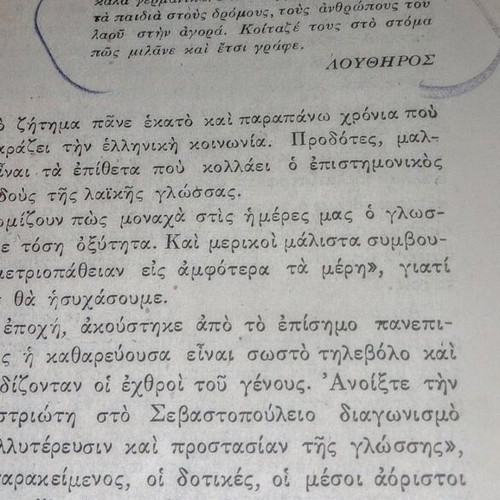 καλὰ γερμανικά,
τὰ παιδιὰ στοὺς δρόμους, τοὺς ἀνθρώπους τοῦ
λαοῦ στὴν ἀγορά. Κοίταξέ τους στὸ στόμα
πῶς μιλᾶνε καὶ ἔτσι γράφε.
ΛΟΥΘΗΡΟΣ
ὸ ζήτημα πᾶνε ἑκατὸ καὶ παραπάνω χρόνια ποὺ
αράζει τὴν ἑλληνικὴ κοινωνία. Προδότες, μαλ-
εἶναι τὰ ἐπίθετα ποὺ κολλάει ὁ ἐπιστημονικὸς
δοὺς τῆς λαϊκῆς γλώσσας.
ομίζουν πὼς μοναχὰ στὶς ἡμέρες μας ὁ γλωσ-
ε τόση ὀξύτητα. Καὶ μερικοὶ μάλιστα συμβου-
μετριοπάθειαν εἰς ἀμφότερα τὰ μέρη», γιατὶ
θὰ ἡσυχάσουμε.
ἐποχή, ἀκούστηκε ἀπὸ τὸ ἐπίσημο πανεπι-
ς ἡ καθαρεύουσα εἶναι σωστὸ τηλεβόλο καὶ
δίζονταν οἱ ἐχθροὶ τοῦ γένους. Ἀνοίξτε τὴν
στριώτη στὸ Σεβαστοπούλειο διαγωνισμὸ
λλυτέρευσιν καὶ προστασίαν τῆς γλώσσης»,
αρακείμενος, οἱ δοτικές, οἱ μέσοι ἀόριστοι